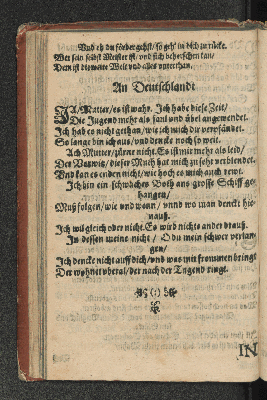 Und eh du förder gehst/ so geh' in dich zu rücke.
Wer sein selbst Meister ist/ und sich beherschen kan/
Dem ist die weite Welt und alles unterthan.
An Deutschlandt
JA/ Mutter/ es ist wahr. Ich habe diese Zeit/
Die Jugend mehr als faul und übel angewendet.
Ich hab es nicht gethan/ wie ich mich dir verpfändet.
So lange bin ich aus/ und dencke noch so weit.
Ach Mutter/ zürne nicht. Es ist mir mehr als leid/
Der Vorwitz/ dieser Muth hat mich zu sehr verblendet.
Und kan es enden nicht/ wie hoch es mich auch rewt.
Ich bin ein schwaches Both ans grosse Schiff ge-
hangen/
Muß folgen/ wie und wenn/ unnd wo man denckt hie-
nauß.
Ich wil gleich oder nicht. Es wird nichts ander drauß.
In dessen meine nicht/ O du mein schwer verlan-
gen/
Ich dencke nicht auff dich/ und was mir frommen bringt
Der wohnet überal/ der nach der Tugend ringt.
IN